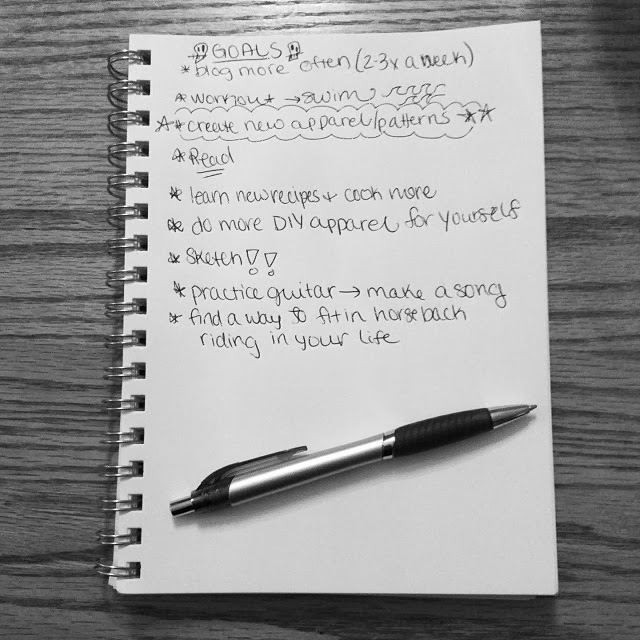 GOALS
* blog more often (2-3x a week)
* workout → swim
* create new apparel/patterns
* Read
* learn new recipes + cook more
* do more DIY apparel for yourself
* Sketch!!
* practice guitar → make a song
* find a way to fit in horseback
riding in your life